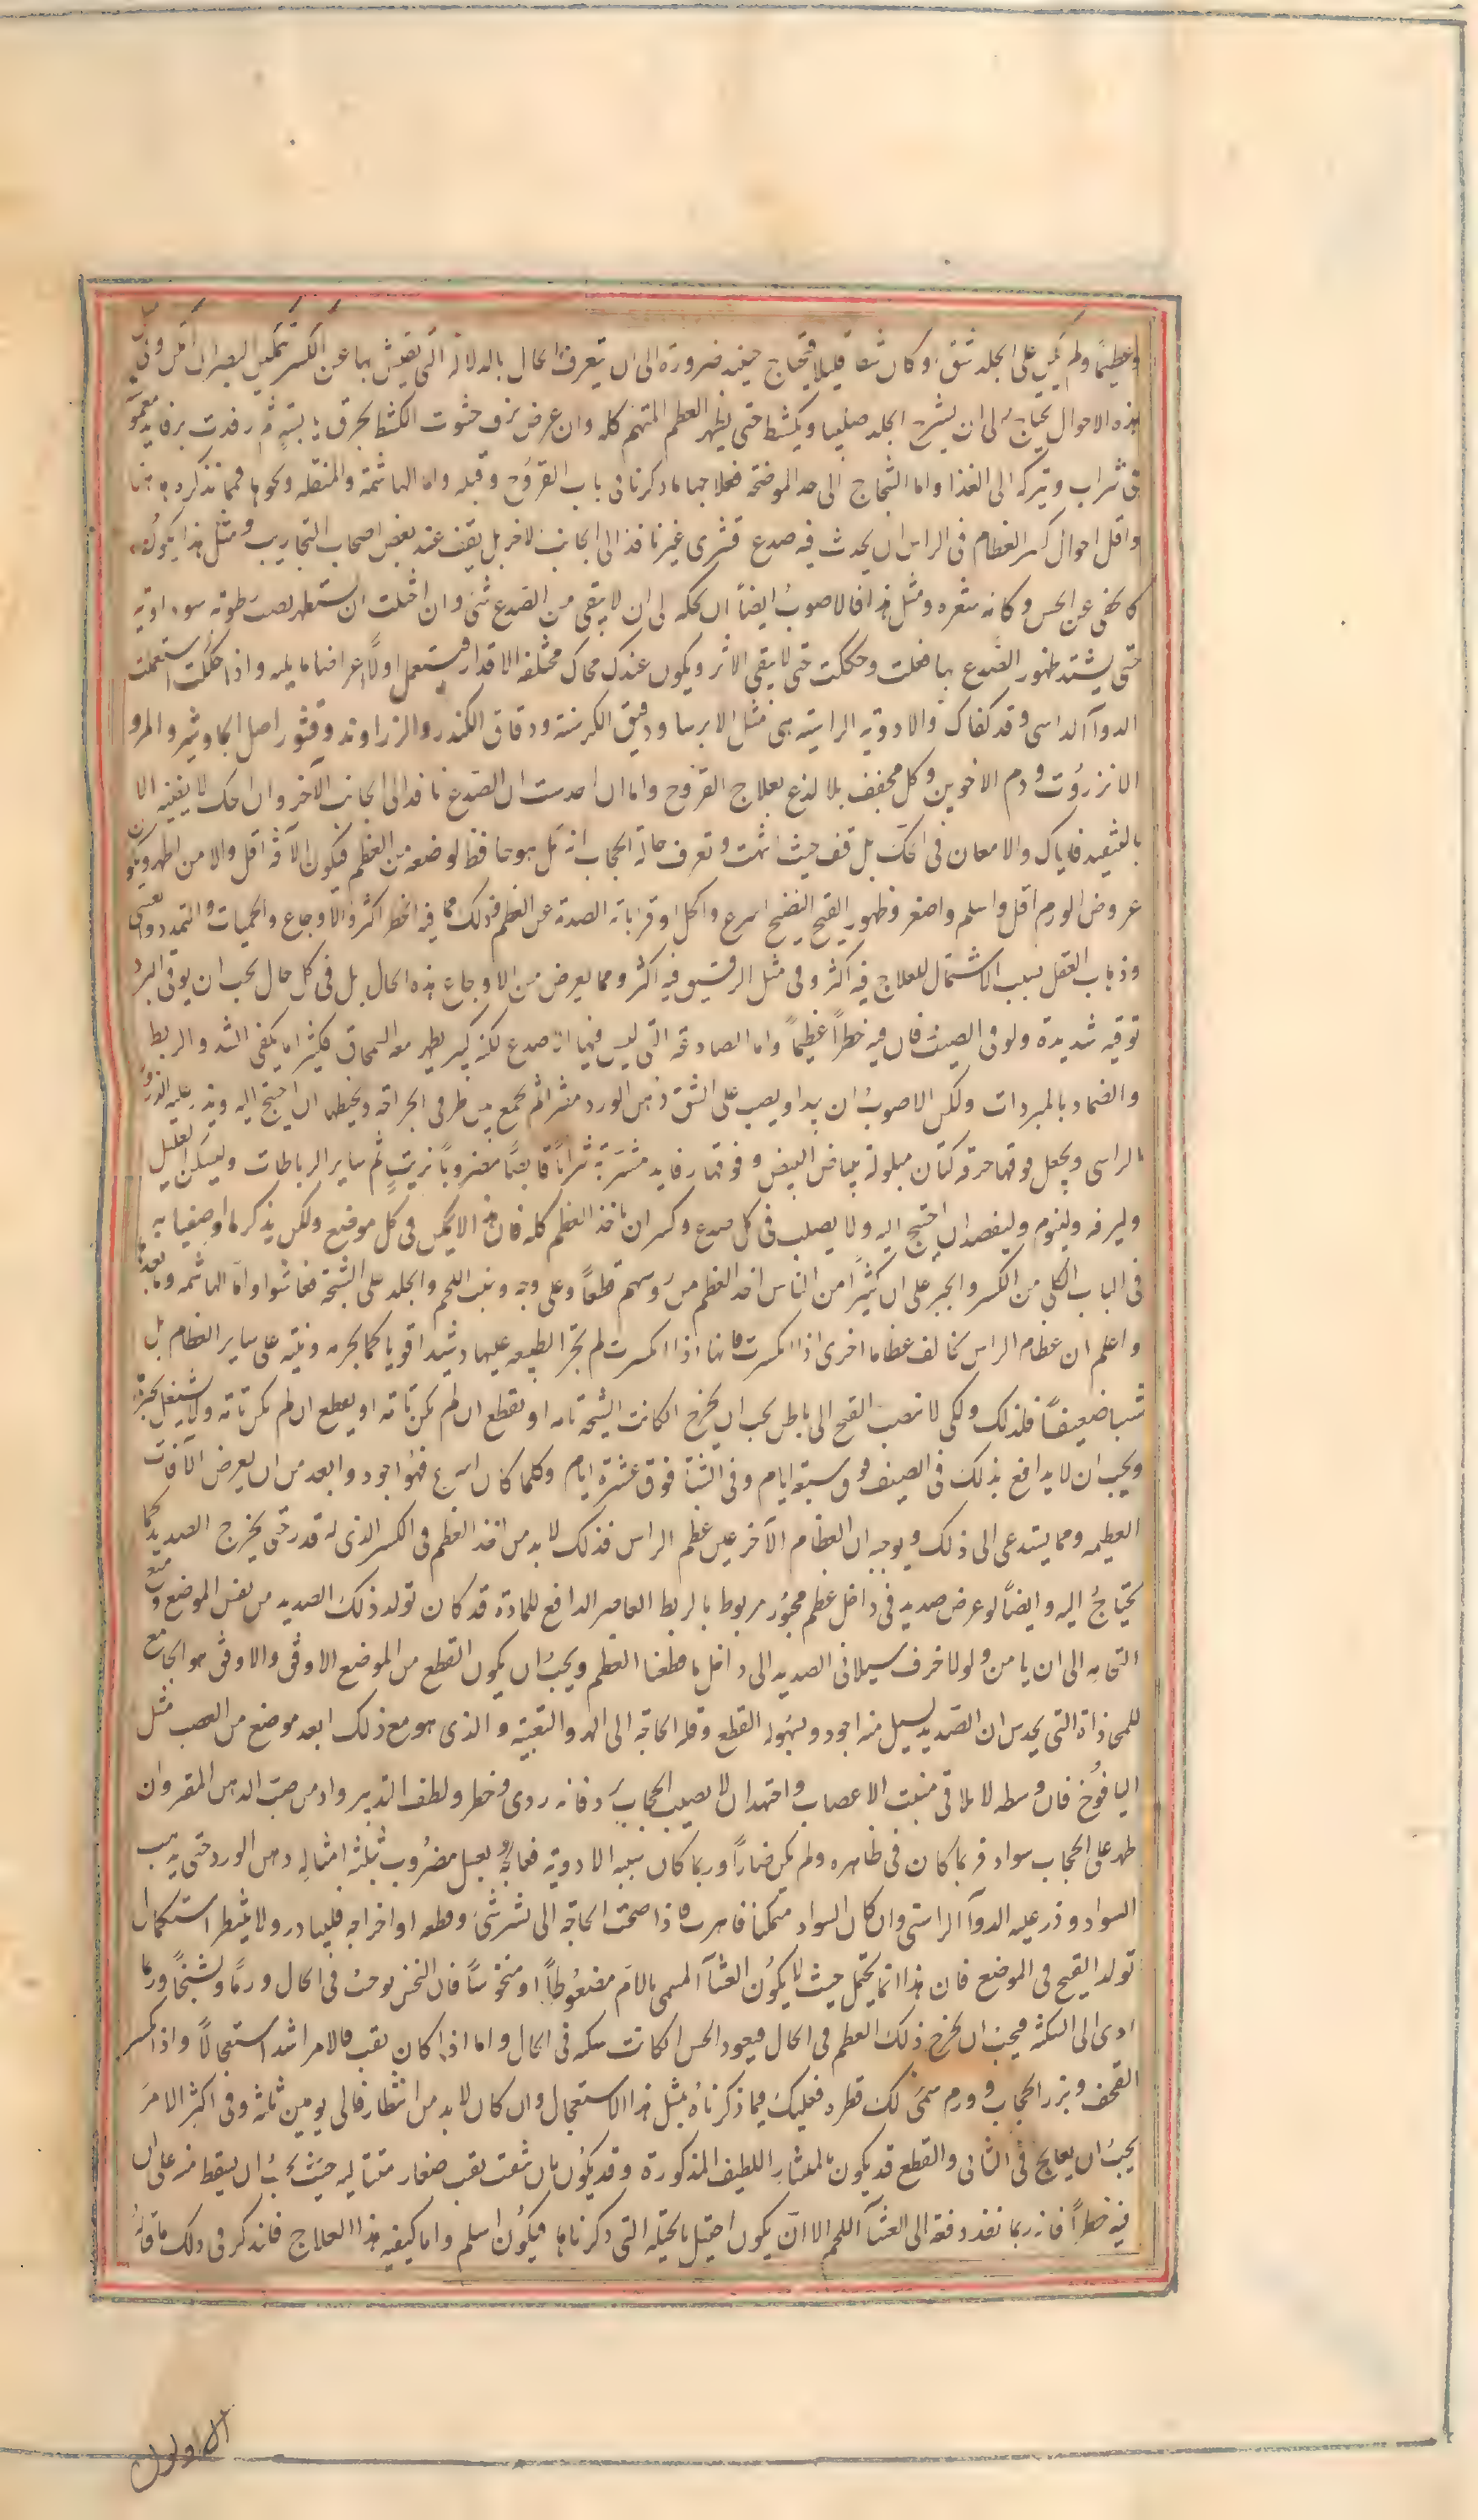 وعظيما ولم يكن على الجلد شق او كان شقا قليلا فتحتاج حينئذ ضرورة الى ان يتعرف الحال بالدلالة التى يفتش بها عن الكسر
هذه الاحوال يحتاج الى ان يشرح الجلد صليبيا ويكشط حتى يظهر العظم المتهم كله وان عرض نزف حشوت الكشط بخرق يابسة ثم رفدت برفايد مغموسة
فى شراب وتتركه الى الغذا واما الشجاج الى حد الموضحة فعلاجها ما ذكرنا فى باب القروح وقبله واما الهاشمة والمنقله ونحوها فمما نذكره ههنا
واقل احوال كسر العظام فى الراس ان يحدث فيه صدع قشرى غير نافذ الى الجانب الاخر بل يقف عند بعض اصحاب التجاريب ومثل هذا يكون
كالخفى عن الحس وكانه شعره ومثل هذا فالاصوب ايضا ان تحكه الى ان لا يبقى من الصدع شئ وان احتلت ان تستظهر بصب رطوبة سوداوية
حتى يشتد ظهور الصدع بها فعلت وحككت حتى لا يبقى الاثر ويكون عندك محاك مختلفه الاقدار فتستعمل اولا اعراضها ما يليه واذا حككت استعملت
الدوآ الراسى وقد كفاك والادوية الراسية هى مثل الايرسا ودقيق الكرسنة ودقاق الكندر والزراوند وقشور اصل الجاوشير والمر و
الانزروت ودم الاخوين وكل مجفف بلا لذع بعلاج القروح واما ان احدست ان الصدع نافد الى الجانب الآخر وان الحك لا يفنيه الا
بالتنفيد فاياك والامعان فى الحك بل قف حيث انتهت وتعرف حالة الحجاب انه هل هو حافظ لوضعه من العظم فيكون الآفة اقل والامن اظهر ويكون
عروض الورم اقل واسلم واصغر وظهور القيح النضيج اسرع واكمل او قد ابانه الصدمة عن العظم فذلك مما فيه الخطر اكثر والاوجاع والحميات والتمدد
وذهاب العقل بسبب الاشتمال للعلاج فيه اكثر وفى مثل الرقيق فيه اكثر ومما يعرض من الاوجاع هذه الحال بل فى كل حال يجب ان يوقى البرد
توقيه شديدة ولو فى الصيف فان فيه خطرا عظيما واما الصادعة التى ليس فيها الا صدع لكنه كبير يظهر معه السمحاق فكثيرا ما يكفى الشد والربط
والضماد بالمبردات ولكن الاصوب ان يبدا ويصب على الشق دهن الورد مفترا ثم يجمع بين طرفى الجراحة ويخيطها ان احتيج اليه ويذر عليه الذرور
الراسى ويجعل فوقها خرقه كتان مبلولة ببياض البيض وفوقها رفايد مشربة شرابا قابضا مضروبا بزيت ثم ساير الرباطات وليسكن العليل
وليرفه ولينوم وليفصد ان احتيج اليه ولا يصلب فى كل صدع وكسر ان ياخذ العظم كله فان هذا لا يمكن فى كل موضع ولكن يذكر ما اوصينا به
فى الباب الكلى من الكسر والجبر على ان كثيرا من الناس اخذ العظم من روسهم قطعا وعلى وجه ونبت اللحم والجلد على الشجة فعاشوا واما الهاشمه وما بعدها
واعلم ان عظام الراس تخالف عظاما اخرى اذا انكسرت فانها اذا انكسرت لم تجر الطبيعه عليها دشبدا قويا كما تجريه وتنبته على ساير العظام بل
شبا ضعيفا فلذلك ولكى لا تنصب القيح الى باطن يجب ان يخرج ان كانت الشجة تامه او يقطع ان لم تكن تامة ولا يشتغل بجبره
ويجب ان لا يدافع بذلك فى الصيف فوق سبعة ايام وفى الشتآ فوق عشرة ايام وكلما كان اسرع فهو اجود وابعد من ان يعرض الآفات
العظيمه ومما يستدعى الى ذلك ويوجبه ان العظام الآخر غير عظم الراس فذلك لا بد من اخذ العظم فى الكسر الذى له قدر حتى يخرج الصديد كما
يحتاج اليه وايضا لو عرض صديد فى داخل عظم مجبور مربوط بالربط العاصر الدافع للمادة قد كان تولد ذلك الصديد من نفس الموضع
التجابه الى ان يامن ولولا خوف سيلان الصديد الى داخل ما قطعنا العظم ويجب ان يكون القطع من الموضع الاوفق والاوفق هو الجامع
للمحاذاة التى يحدس ان الصديد يسيل منه اجود وبسهوله القطع وقله الحاجة الى الهز والتعبية والذى هو مع ذلك ابعد موضع من العصب مثل
اليافوخ فان وسطه لا يلاقى منبت الاعصاب واجتهد ان لا يصيب الحجاب برد فانه ردى وخطر ولطف التدبير وادمن صب الدهن المفتر وان
ظهر على الحجاب سواد فربما كان فى ظاهره ولم يكن ضارا وربما كان سببه الادوية فعالجه بعسل مضروب بثلثة امثاله دهن الورد حتى يذهب
السواد وذر عليه الدوآ الراسى وان كان السواد متمكنا فاهرب واذا صحت الحاجة الى نشر شئ وقطعه او اخراجه فليبادر ولا ينتظر استكمال
تولد القيح فى الموضع فان هذا انما يحتمل حيث لا يكون الغشآ المسمى بالام مضغوطا او منخوسا فان النخس يوجب فى الحال ورما وتشنجا وربما
ادى الى السكتة فيجب ان يخرج ذلك العظم فى الحال فيعود الحس ان كانت سكته فى الحال واما اذا كان ثقب فالامر اشد استعجالا واذا انكسر
القحف وبرز الحجاب وورم فعليك فيما ذكرناه بمثل هذا الاستعجال وان كان لا بد من انتظار فالى يومين ثلثة وفى اكثر الامر
يجب ان يعالج فى الثانى والقطع قد يكون بالمنشار اللطيف المذكورة وقد يكون بان يثقب ثقب صغار متتاليه حيث يجب ان يسقط منه على ان
فيه خطرا فانه ربما نفد دفعة الى الغشآ اللهم الا ان يكون احتيل بالحيلة التى ذكرناها فيكون اسلم واما كيفيه هذا العلاج فاند كر فى ذلك ما قاله
الاولون